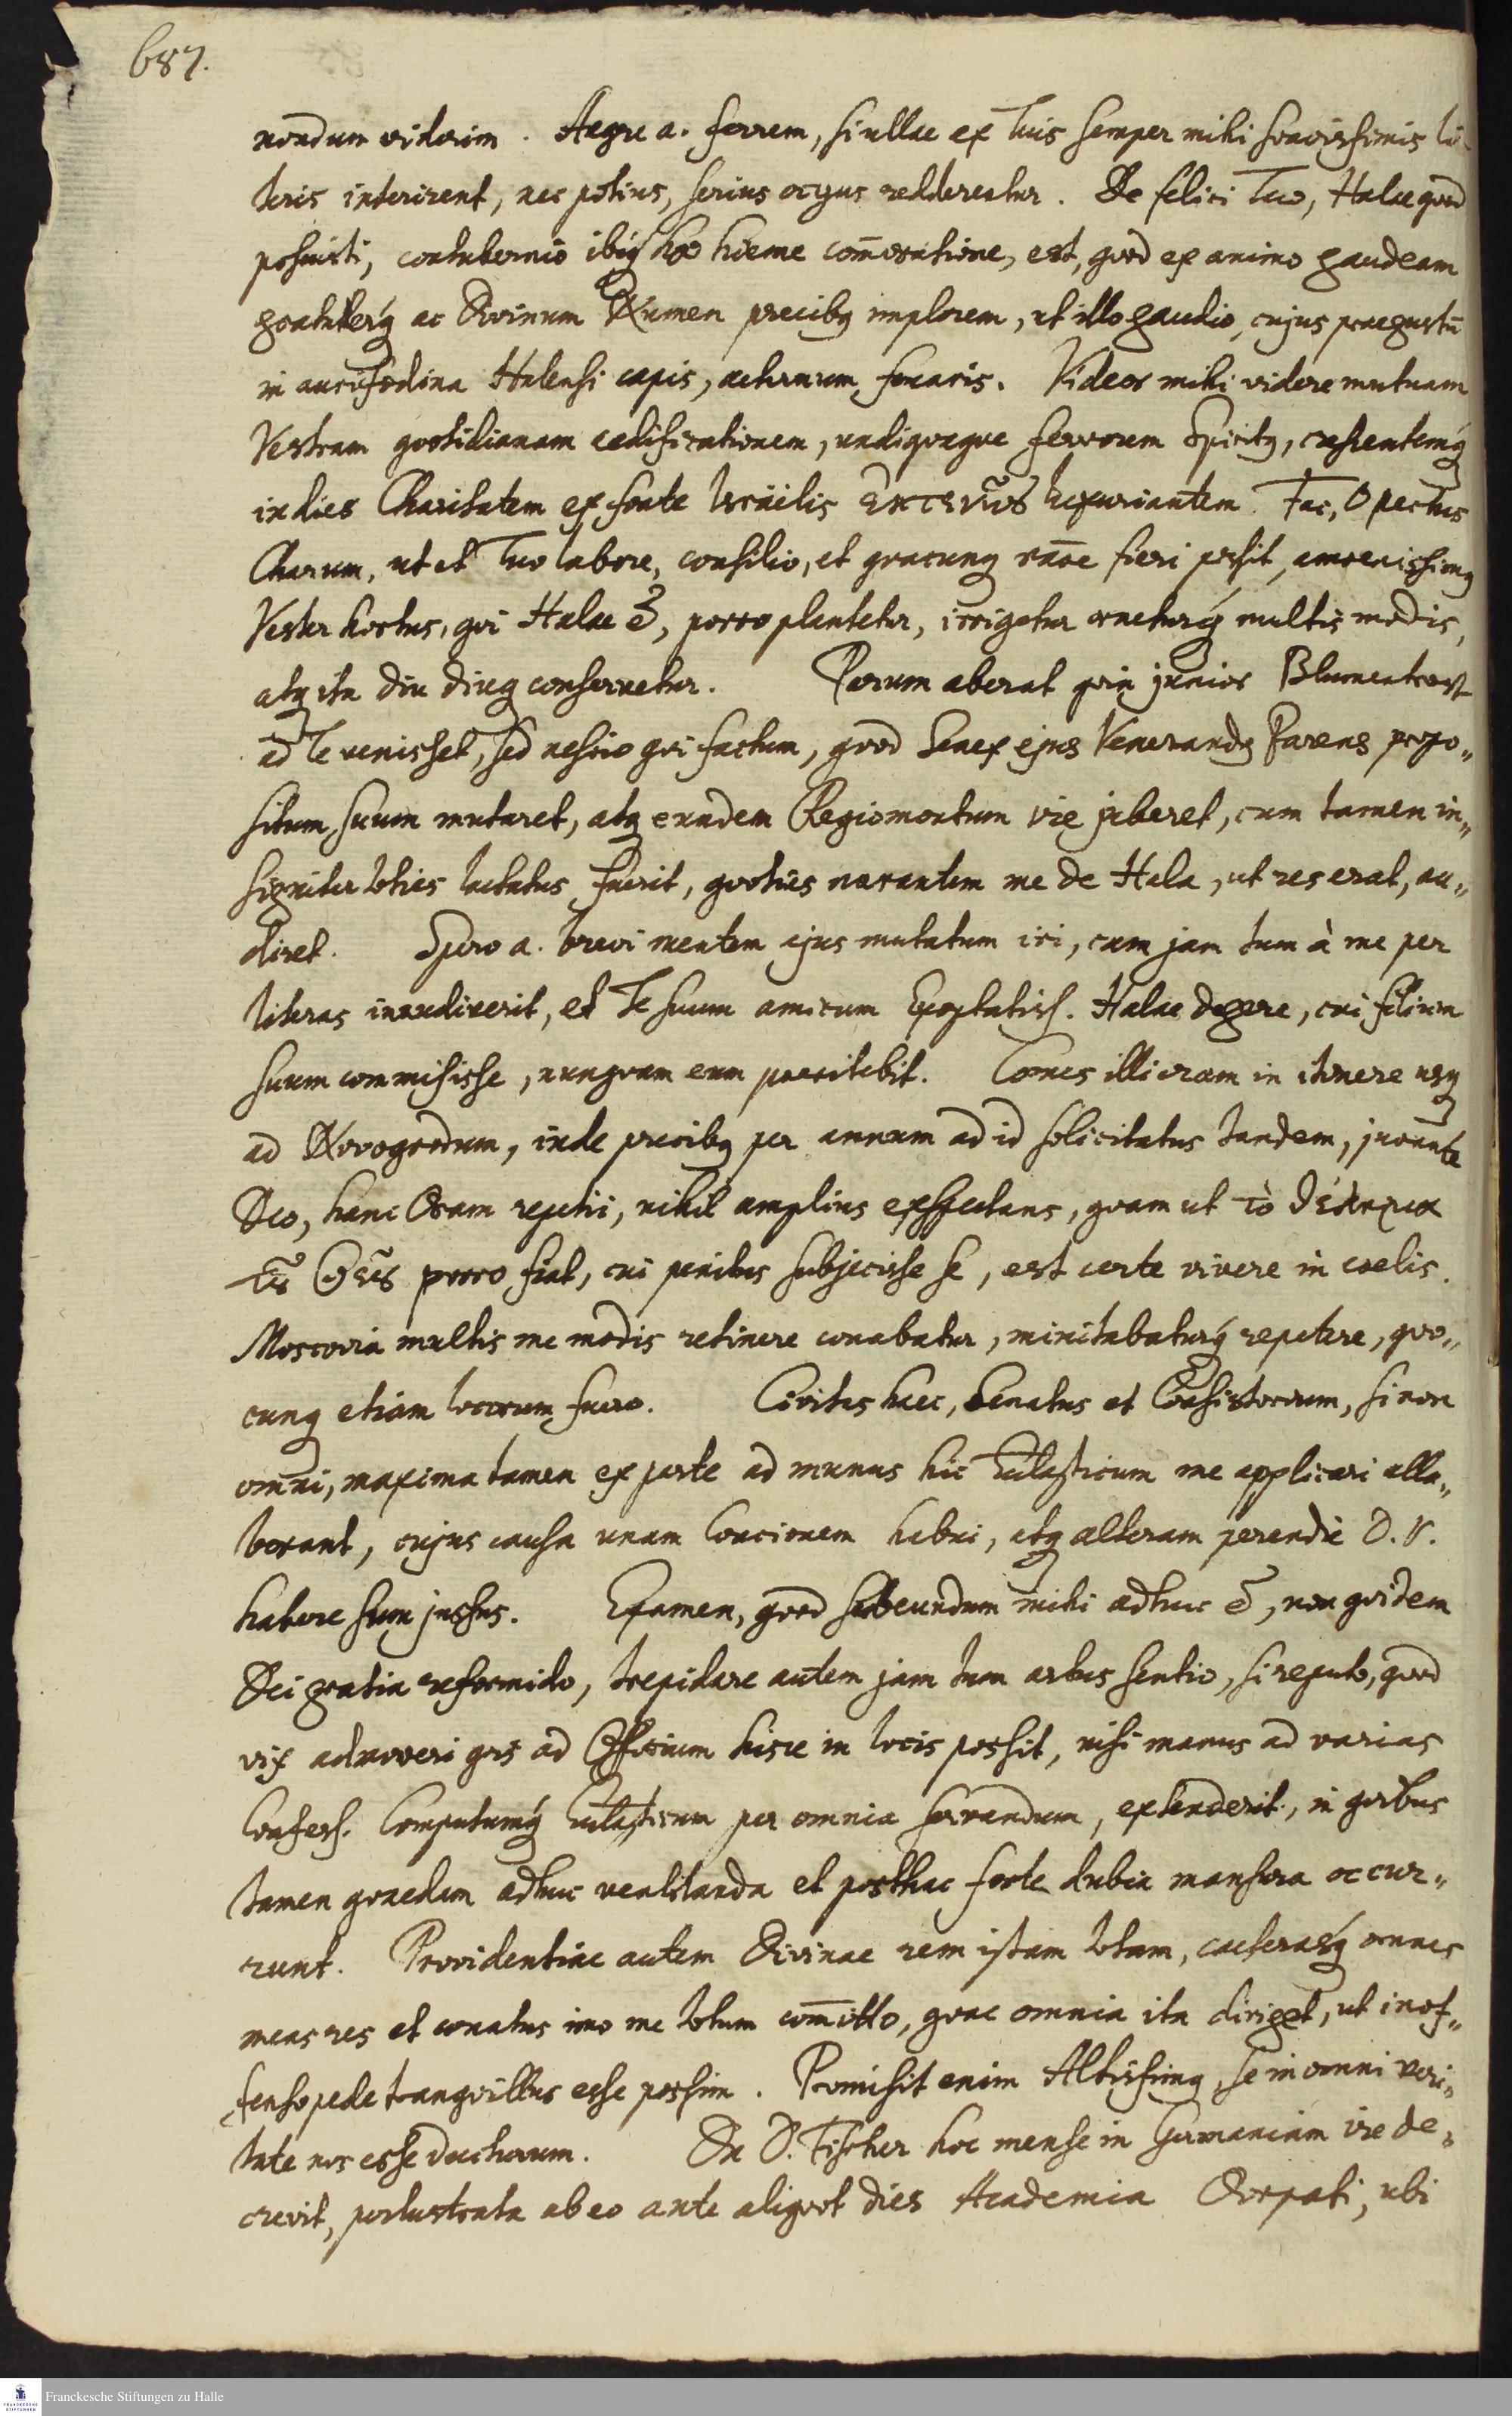 687.
nondum viderim. Aegre a. ferrem, si ullae ex Tuis semper mihi suavissimis li-
teris interirent, nec potius, serius ocyus redderentur. De felici Tuo, Halae quod
posuisti, contubernio ibiq́ hoc hieme com̄oratione, est, quod ex animo gaudeam
gratulerq́ ac Divinum Numen precibq implorem, ut illo gaudio, cujus praegustū
in aurifodina Halensi capis, aeternum fruaris. Videor mihi videre mutuam
Vestram quotidianam aedificationem, undiquaque fervorem Spiritq, crescentemq́
in dies Charitatem ex fonte Israëlis ἐκτενῶς luxuriantem. Fac, O pectus
Charum, ut et Tuo labore, consilio, et quacunq rāoe fieri possit, amoenissimq
Vester hortus, qui Halae ē, porro plantetur, irrigetur orneturq́ multis modis,
atq ita diu diuq conservetur. Parum aberat quin junior Blumentrost
ad Te venisset, sed nescio qui factum, quod Senex ejus Venerandq Parens propo-
situm suum mutaret, atq eundem Regiomontum ire juberet, cum tamen in-
signiter toties laetatus fuerit, quoties narrantem me de Hala, ut res erat, au-
diret. Spero a. brevi mentem ejus mutatum iri, cum jam tum à me per
literas inaudiverit, et Te suum amicum Exoptatiss. Halae degere, cui filium
suum commisisse, nunquam eum poenitebit. Comes illi eram in itinere usq
ad Novogrodum, inde precibq per annum ad id solicitatus tandem, juvante
Deo, hanc Oram repetii, nihil amplius exspectans, quam ut τὸ θέλημα
τῦ Θεῦ porro fiat, cui penitus subjecisse se, est certe vivere in coelis.
Moscovia multis me modis retinere conabatur, minitabaturq́ repetere, quo-
cunq etiam locorum fuero. Civitas haec, Senatus et Consistorium, si non
omni, maxima tamen ex parte ad munus hic Eclasticum me applicari alla-
borant, cujus causa unam Concionem habui, atq alteram perendie D. V.
habere sum jussus. Examen, quod subeundum mihi adhuc ē, non quidem
Dei gratia reformido, trepidare autem jam tum artus sentio, si reputo, quod
vix admoveri quis ad Officium hisce in locis possit, nisi manus ad varias
Confess. Computumq́ Eclasticum per omnia servandum, extenderit, in quibus
tamen quaedam adhuc ventilanda et posthac forte dubia mansura occur-
runt. Providentiae autem Divinae rem istam totam, caeterasq́ omnes
meas res et conatus imo me totum com̄itto, quae omnia ita diriget, ut inof-
fenso pede tranquillus esse possim. Promisit enim Altissimq, se in omni veri-
tate nos esse ducturum. Dn D. Fischer hoc mense in Germaniam ire de-
crevit, perlustrata ab eo ante aliquot dies Academia Dorpati, ubi
Franckesche Stiftungen zu Halle